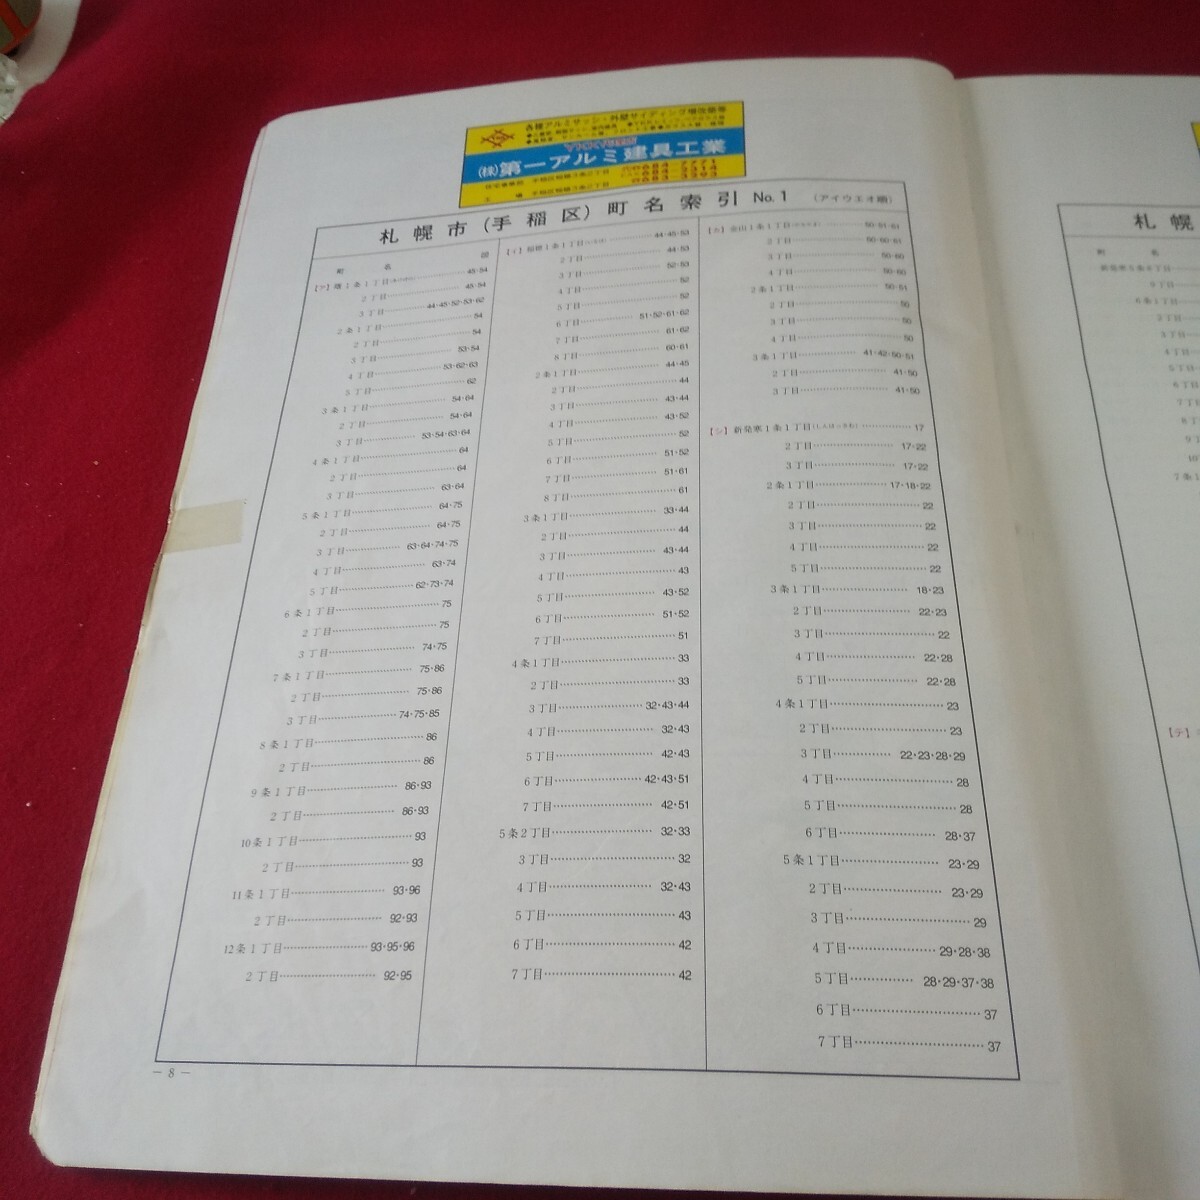 各種アルミサッシ・外壁サイディング増改築等
(株)第一アルミ建具工業
684-7771
684-2314
683-3393
札幌市(手稲区)町名索引 No.1 (アイウエオ順)
町 名 図
【ア】曙1条1丁目 45・54
2丁目 45・54
3丁目 44・45・52・53・62
2条1丁目 54
2丁目 54
3丁目 53・54
4丁目 53・62・63
5丁目 62
3条1丁目 54・64
2丁目 54・64
3丁目 53・54・63・64
4条1丁目 64
2丁目 64
3丁目 63・64
5条1丁目 64・75
2丁目 64・75
3丁目 63・64・74・75
4丁目 63・74
5丁目 62・73・74
6条1丁目 75
2丁目 75
3丁目 74・75
7条1丁目 75・86
2丁目 75・86
3丁目 74・75・85
8条1丁目 86
2丁目 86
9条1丁目 86・93
2丁目 86・93
10条1丁目 93
2丁目 93
11条1丁目 93・96
2丁目 92・93
12条1丁目 93・95・96
2丁目 92・95
【イ】稲穂1条1丁目 44・45・53
2丁目 44・53
3丁目 52・53
4丁目 52
5丁目 52
6丁目 51・52・61・62
7丁目 61・62
8丁目 60・61
2条1丁目 44・45
2丁目 44
3丁目 43・44
4丁目 43・52
5丁目 52
6丁目 51・52
7丁目 51・61
8丁目 61
3条1丁目 33・44
2丁目 44
3丁目 43・44
4丁目 43
5丁目 43・52
6丁目 51・52
7丁目 51
4条1丁目 33
2丁目 33
3丁目 32・43・44
4丁目 32・43
5丁目 42・43
6丁目 42・43・51
7丁目 42・51
5条2丁目 32・33
3丁目 32
4丁目 32・43
5丁目 43
6丁目 42
7丁目 42
【カ】金山1条1丁目 50・51・61
2丁目 50・60・61
3丁目 50・60
4丁目 50・60
2条1丁目 50・51
2丁目 50
3丁目 50
4丁目 50
3条1丁目 41・42・50・51
2丁目 41・50
3丁目 41・50
【シ】新発寒1条1丁目(しんはっさむ) 17
2丁目 17・22
3丁目 17・22
2条1丁目 17・18・22
2丁目 22
3丁目 22
4丁目 22
5丁目 22
3条1丁目 18・23
2丁目 22・23
3丁目 22
4丁目 22・28
5丁目 22・28
4条1丁目 23
2丁目 23
3丁目 22・23・28・29
4丁目 28
5丁目 28
6丁目 28・37
5条1丁目 23・29
2丁目 23・29
3丁目 29
4丁目 29・28・38
5丁目 28・29・37・38
6丁目 37
7丁目 37
− 8 −
札幌
町 名
新発寒5条8丁目
9丁目
6条1丁目
2丁目
3丁目
4丁目
5丁
6丁
7丁
8丁
9
10
7条1
【テ】